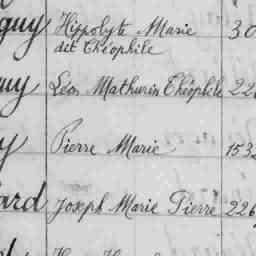 guy Hippolyte Marie 30
dit Théophile
Léon Mathurin Théophile 22
Pierre Marie 153
ard Joseph Marie Pierre 226